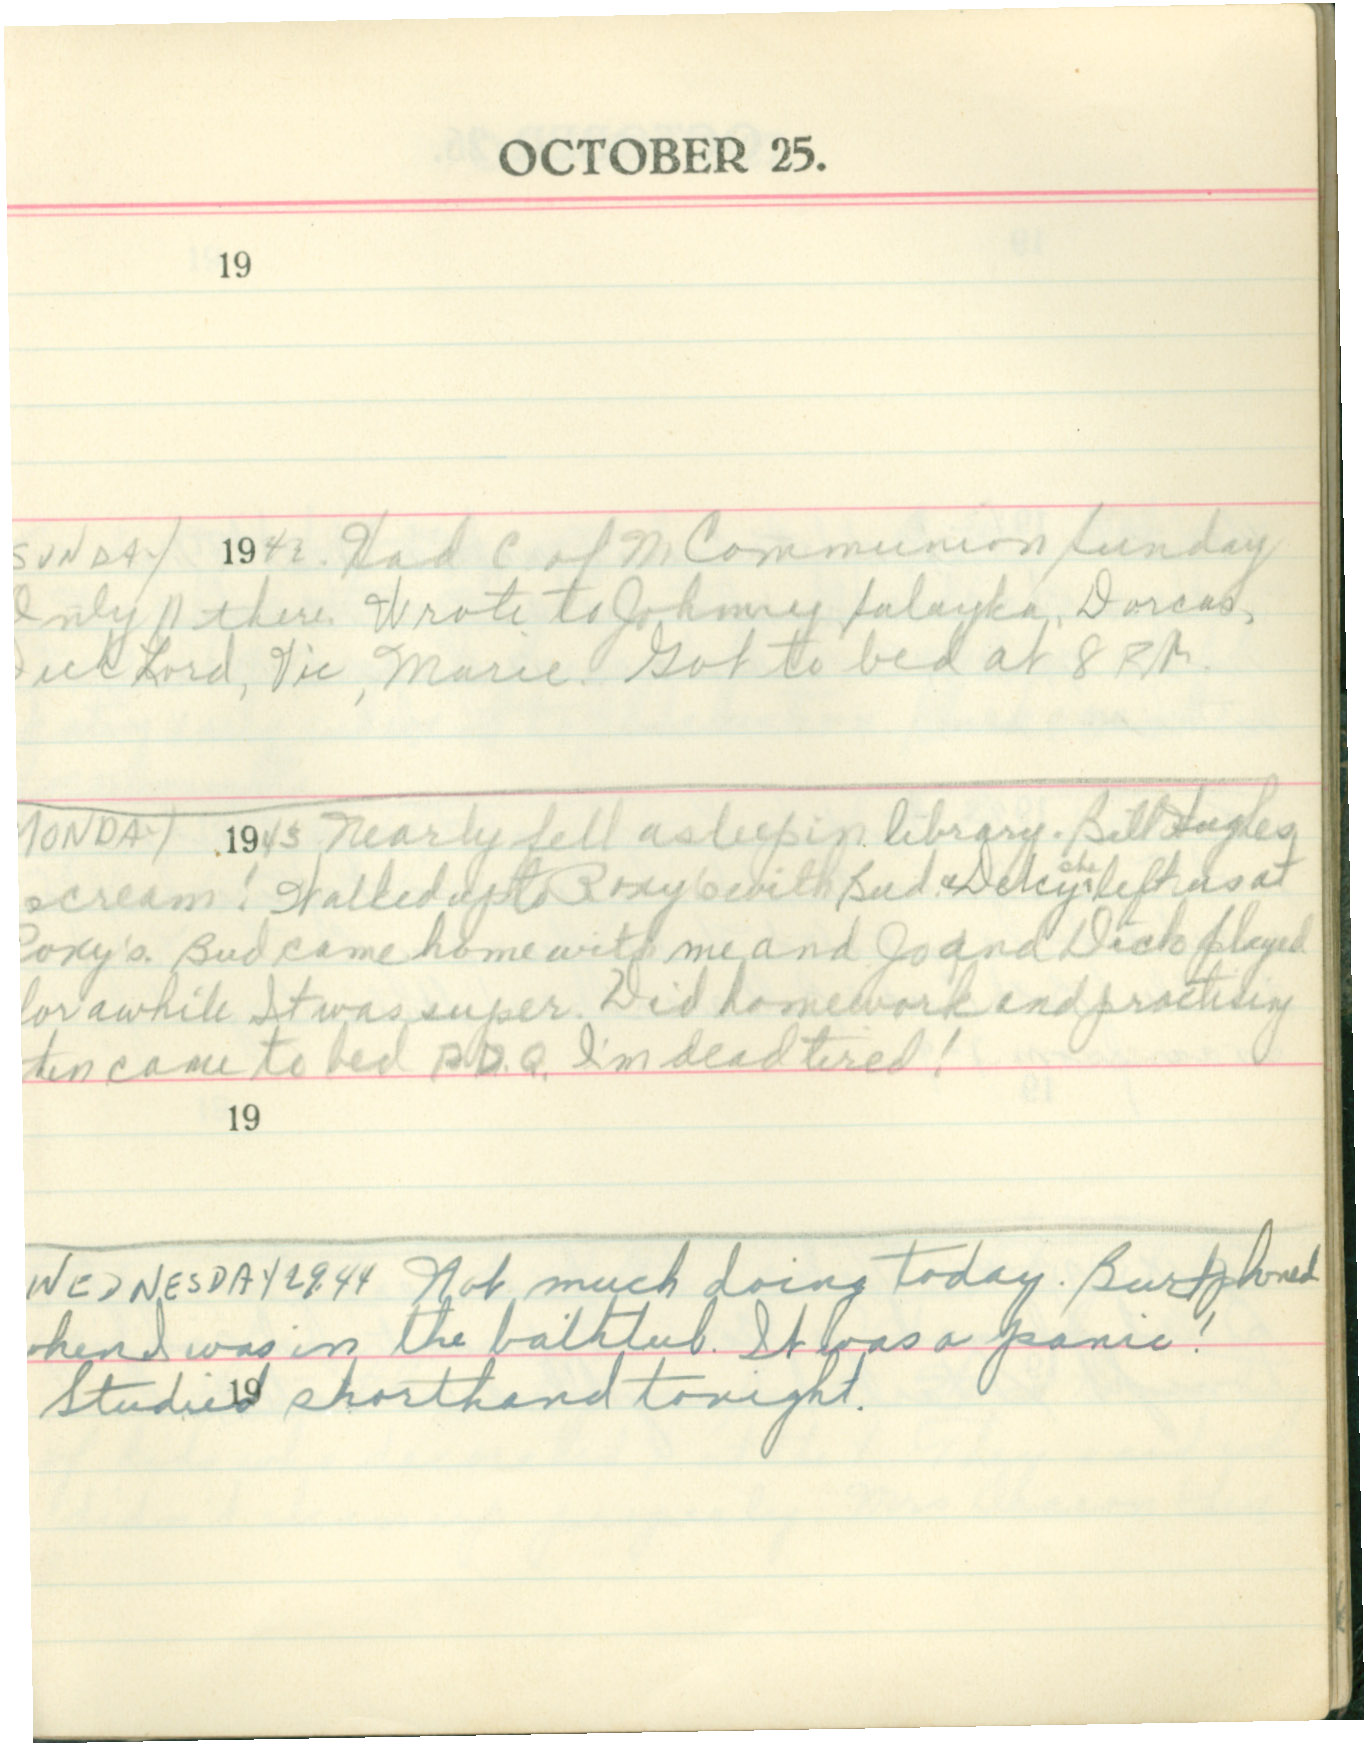 OCTOBER 25.
19
SUNDAY 1942. Had C of M Communion Sunday
Only 11 there. Wrote to Johnny Salayka, Dorcas,
Dick Lord, Vic, Marie. Got to bed at 8 P.M.
MONDAY 1943 Nearly fell asleep in library. Bill
scream! Walked up to Roxy's with Bud & Delcy she left us at
Roxy's. Bud came home with me and Jo and Dick played
for awhile It was super. Did homework and practising
then came to bed P.D.Q. I'm dead tired!
19
WEDNESDAY 1944 Not much doing today. Burt phoned
when I was in the bathtub. It was a panic!
19
Studied shorthand tonight.